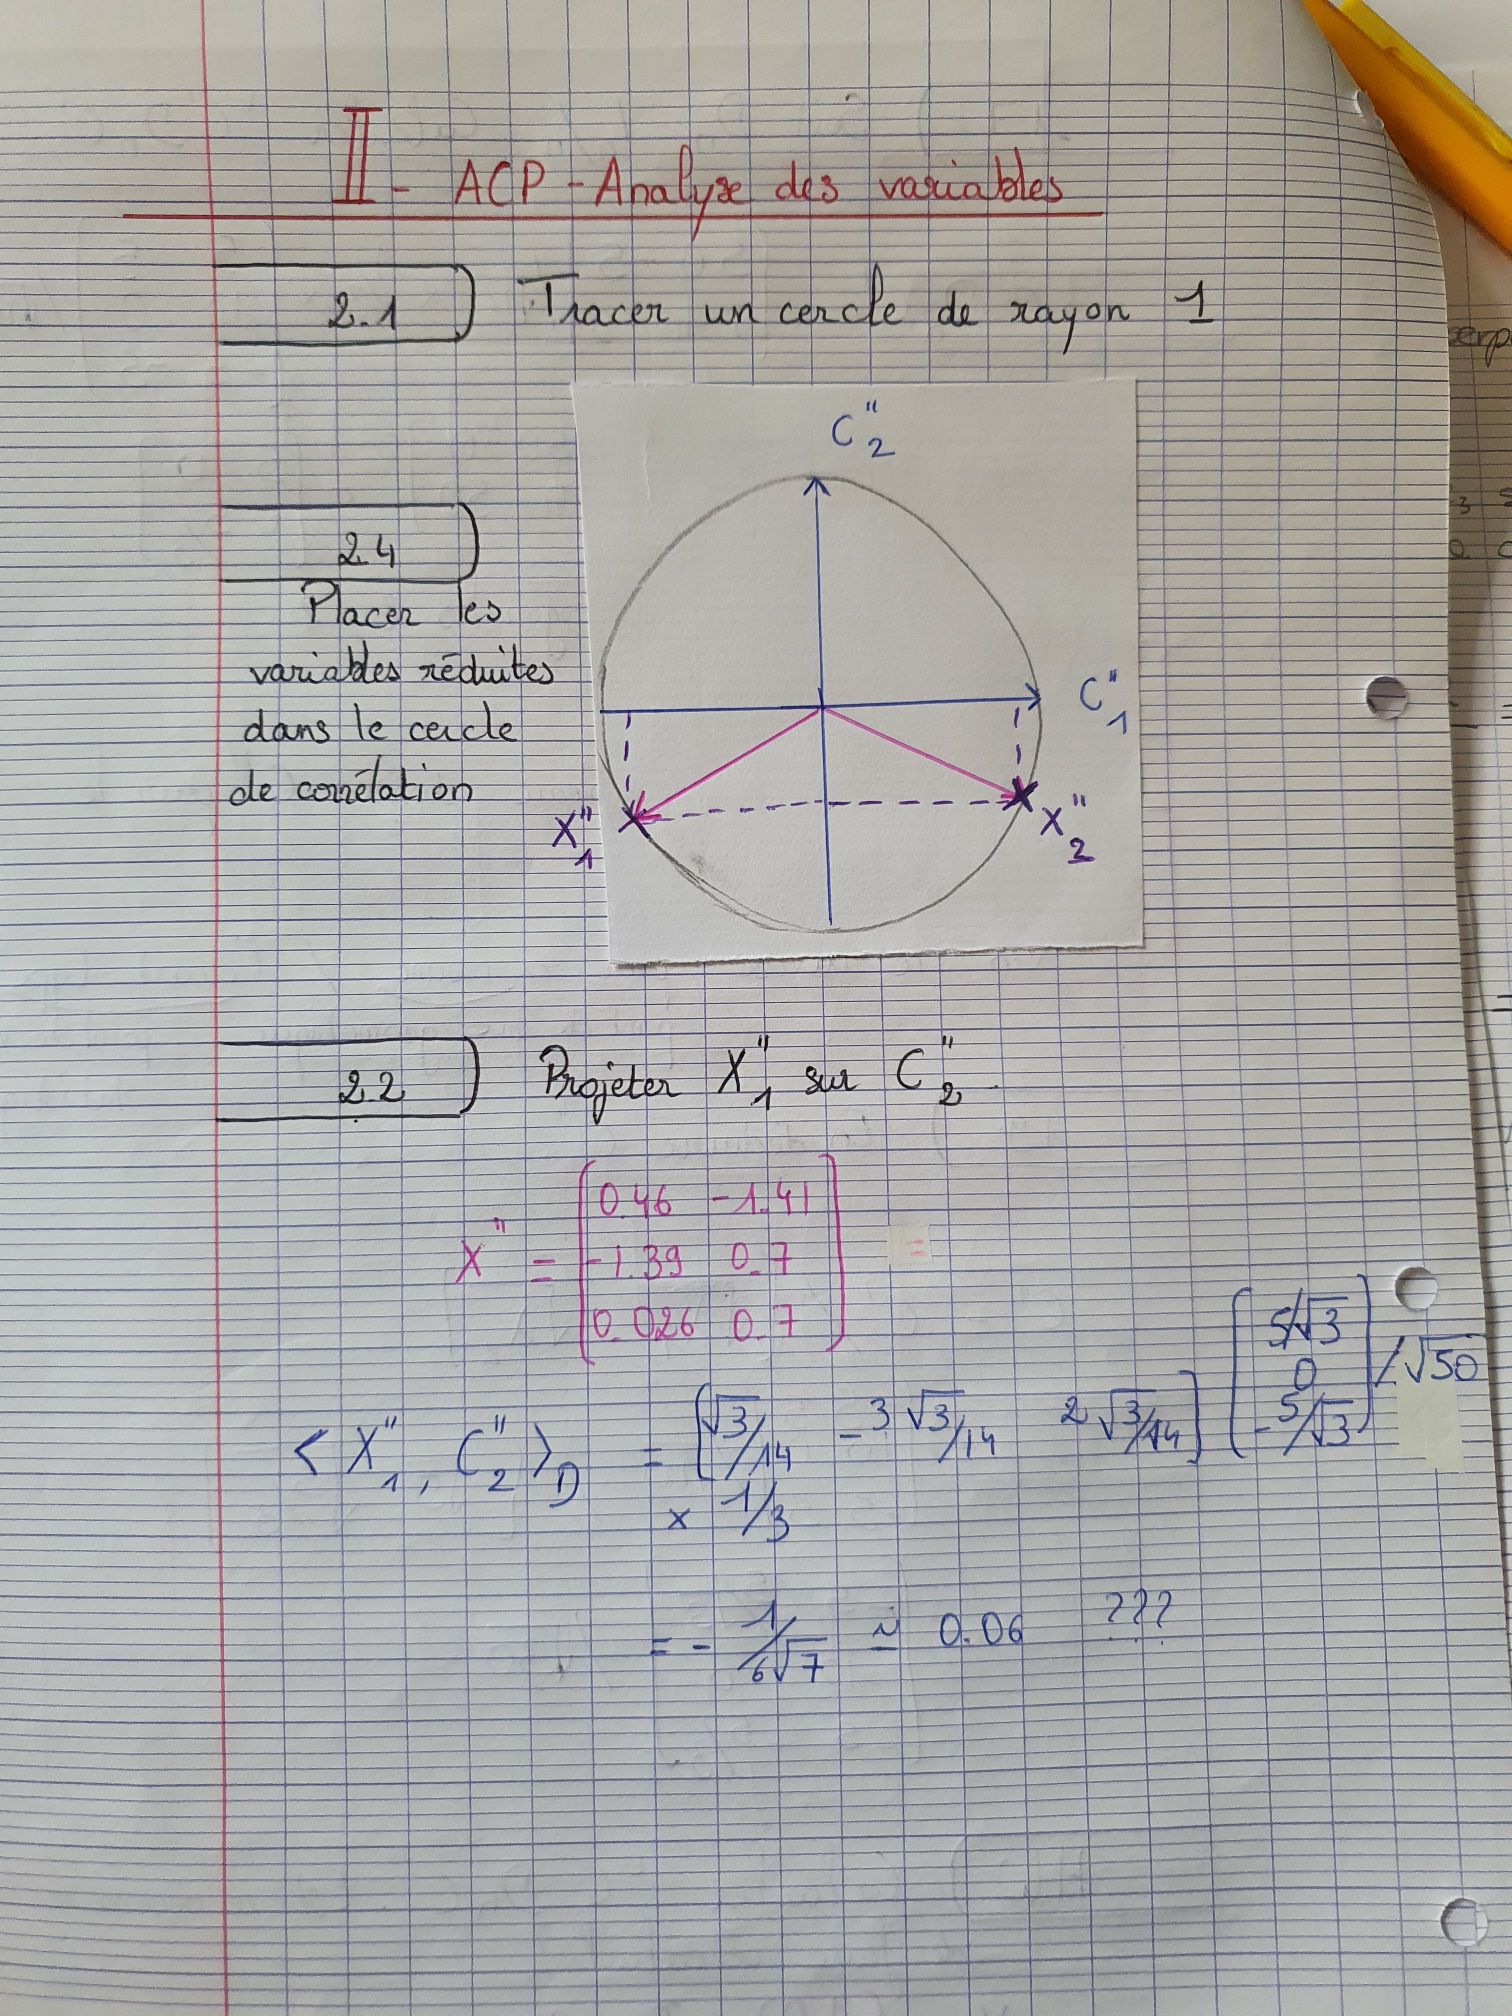 II - ACP - Analyse des variables
2.1 Tracer un cercle de rayon 1
C"2
2.4
Placer les
variables réduites
dans le cercle
de corrélation
C"1
X"1
X"2
2.2 Projeter X"1 sur C"2.
X" = [0.46 -1.41
-1.39 0.7
0.026 0.7] =
< X"1, C"2 >D = [√3/14 -3√3/14 2√3/14] [5/√3 0 -5/√3] /√50
× 1/3
= - 1/6√7 ≃ 0.06 ???